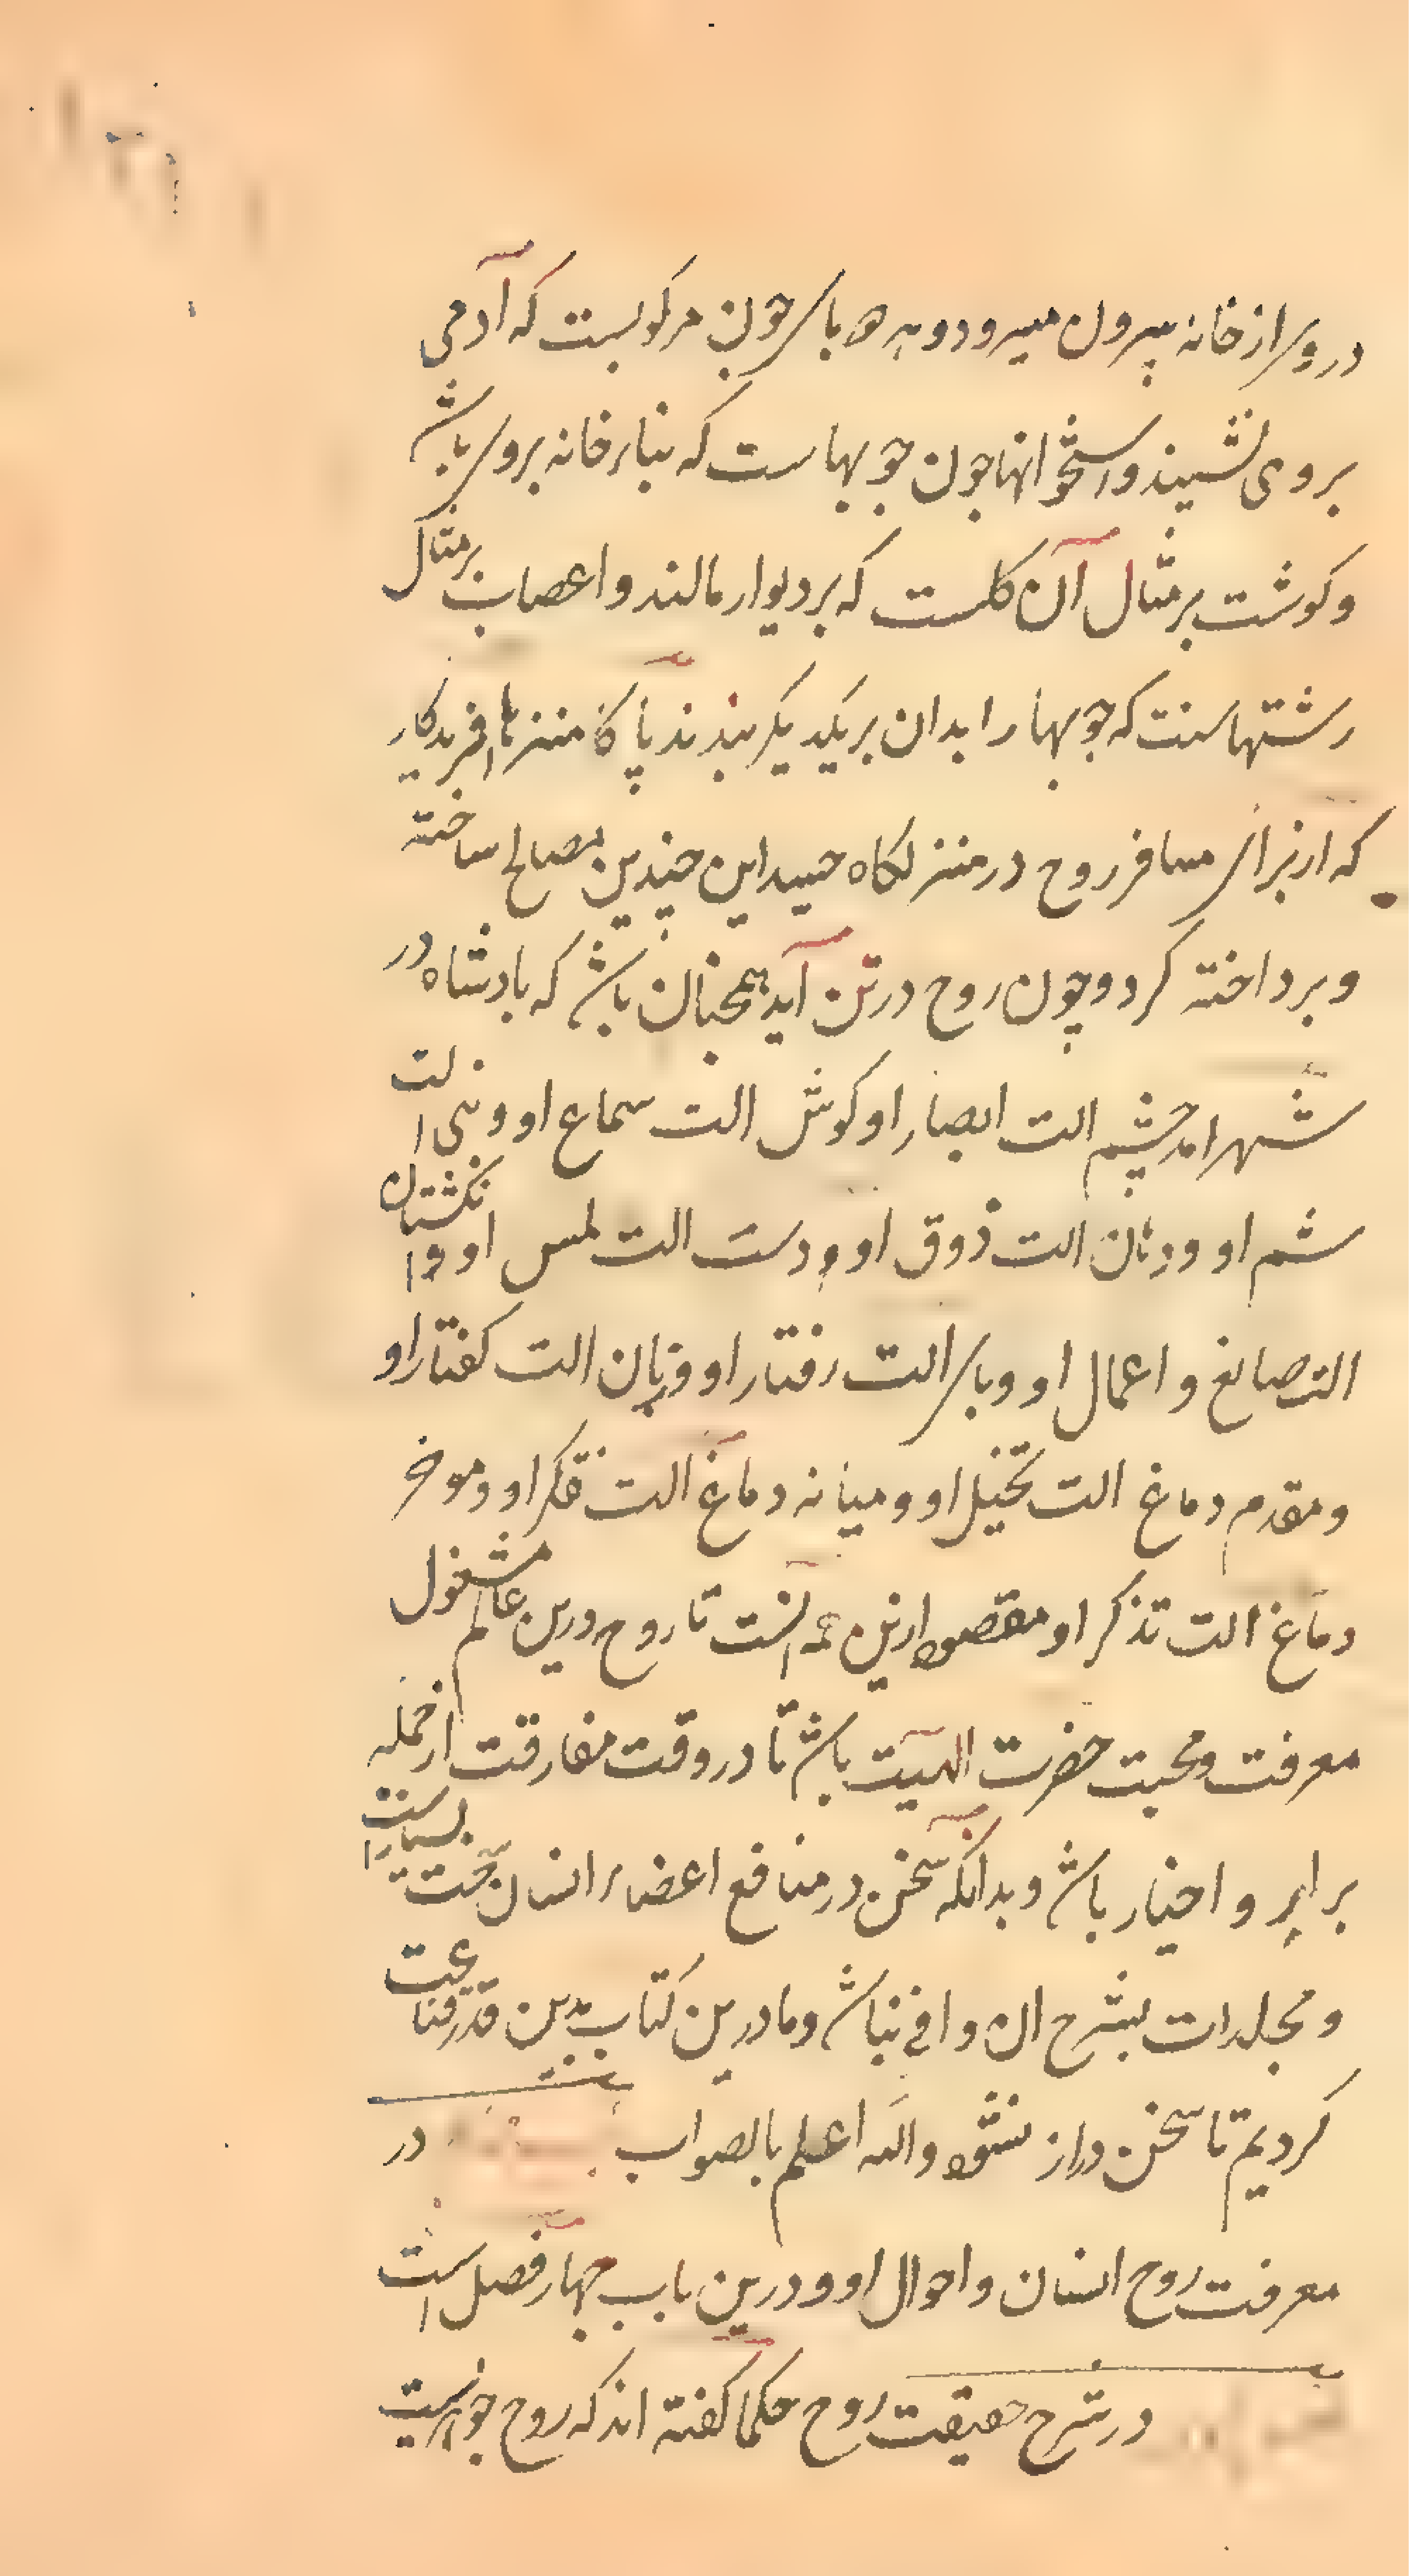 دروی از خانه بیرون میرود و هر دو پای چون مرکوبست که آدمی
بر وی نشیند و استخوانها چون چوبهاست که بناء خانه بر وی باشد
و کوشت بر مثال آن کلست که بر دیوار مالند و اعصاب بر مثال
رشتهاست که چوبها را بدان بر یکدیکر بندند پاکا منزها افریدکاری
که از برای مسافر روح در منزلکاه جسد این چندین مصالح ساخته
و پرداخته کرد و چون روح در تن آید همچنان باشد که بادشاه در
شهر امد چشم الت ابصار او کوش الت سماع او و بینی الت
شم او و دهان الت ذوق او و دست الت لمس او و انکشتان
الت صنایع و اعمال او و پای الت رفتار او و زبان الت کفتار او
و مقدم دماغ الت تخیل او و میانه دماغ الت تفکر او و موخر
دماغ الت تذکر او و مقصود ازین همه انست تا روح درین عالم مشغول
معرفت و محبت حضرت الهیت باشد تا در وقت مفارقت از جمله
ابرار و اخیار باشد و بدانکه سخن در منافع اعضاء انسان سخت بسیار است
و مجلدات بشرح ان وافی نباشد و ما درین کتاب بدین قدر قناعت
کردیم تا سخن دراز نشود والله اعلم بالصواب در
معرفت روح انسان و احوال او و درین باب چهار فصل است
در شرح حقیقت روح حکما کفته اند که روح جوهریست